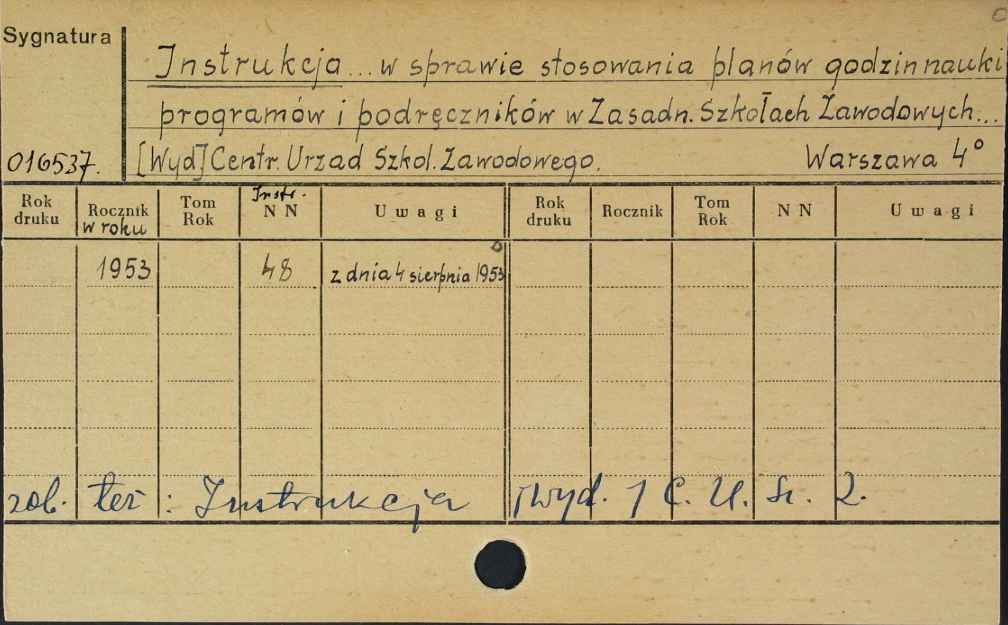 Sygnatura
Instrukcja ... w sprawie stosowania planów godzin nauki
programów i podręczników w Zasadn. Szkołach Zawodowych...
016537. [Wyd] Centr. Urzad Szkol. Zawodowego. Warszawa 4°
Rok druku Rocznik w roku Tom Rok Instr. N N Uwagi Rok druku Rocznik Tom Rok N N Uwagi
1953 48 z dnia 4 sierpnia 1953
zob. też : Instrukcja [wyd. ] C. U. Sz. Z.